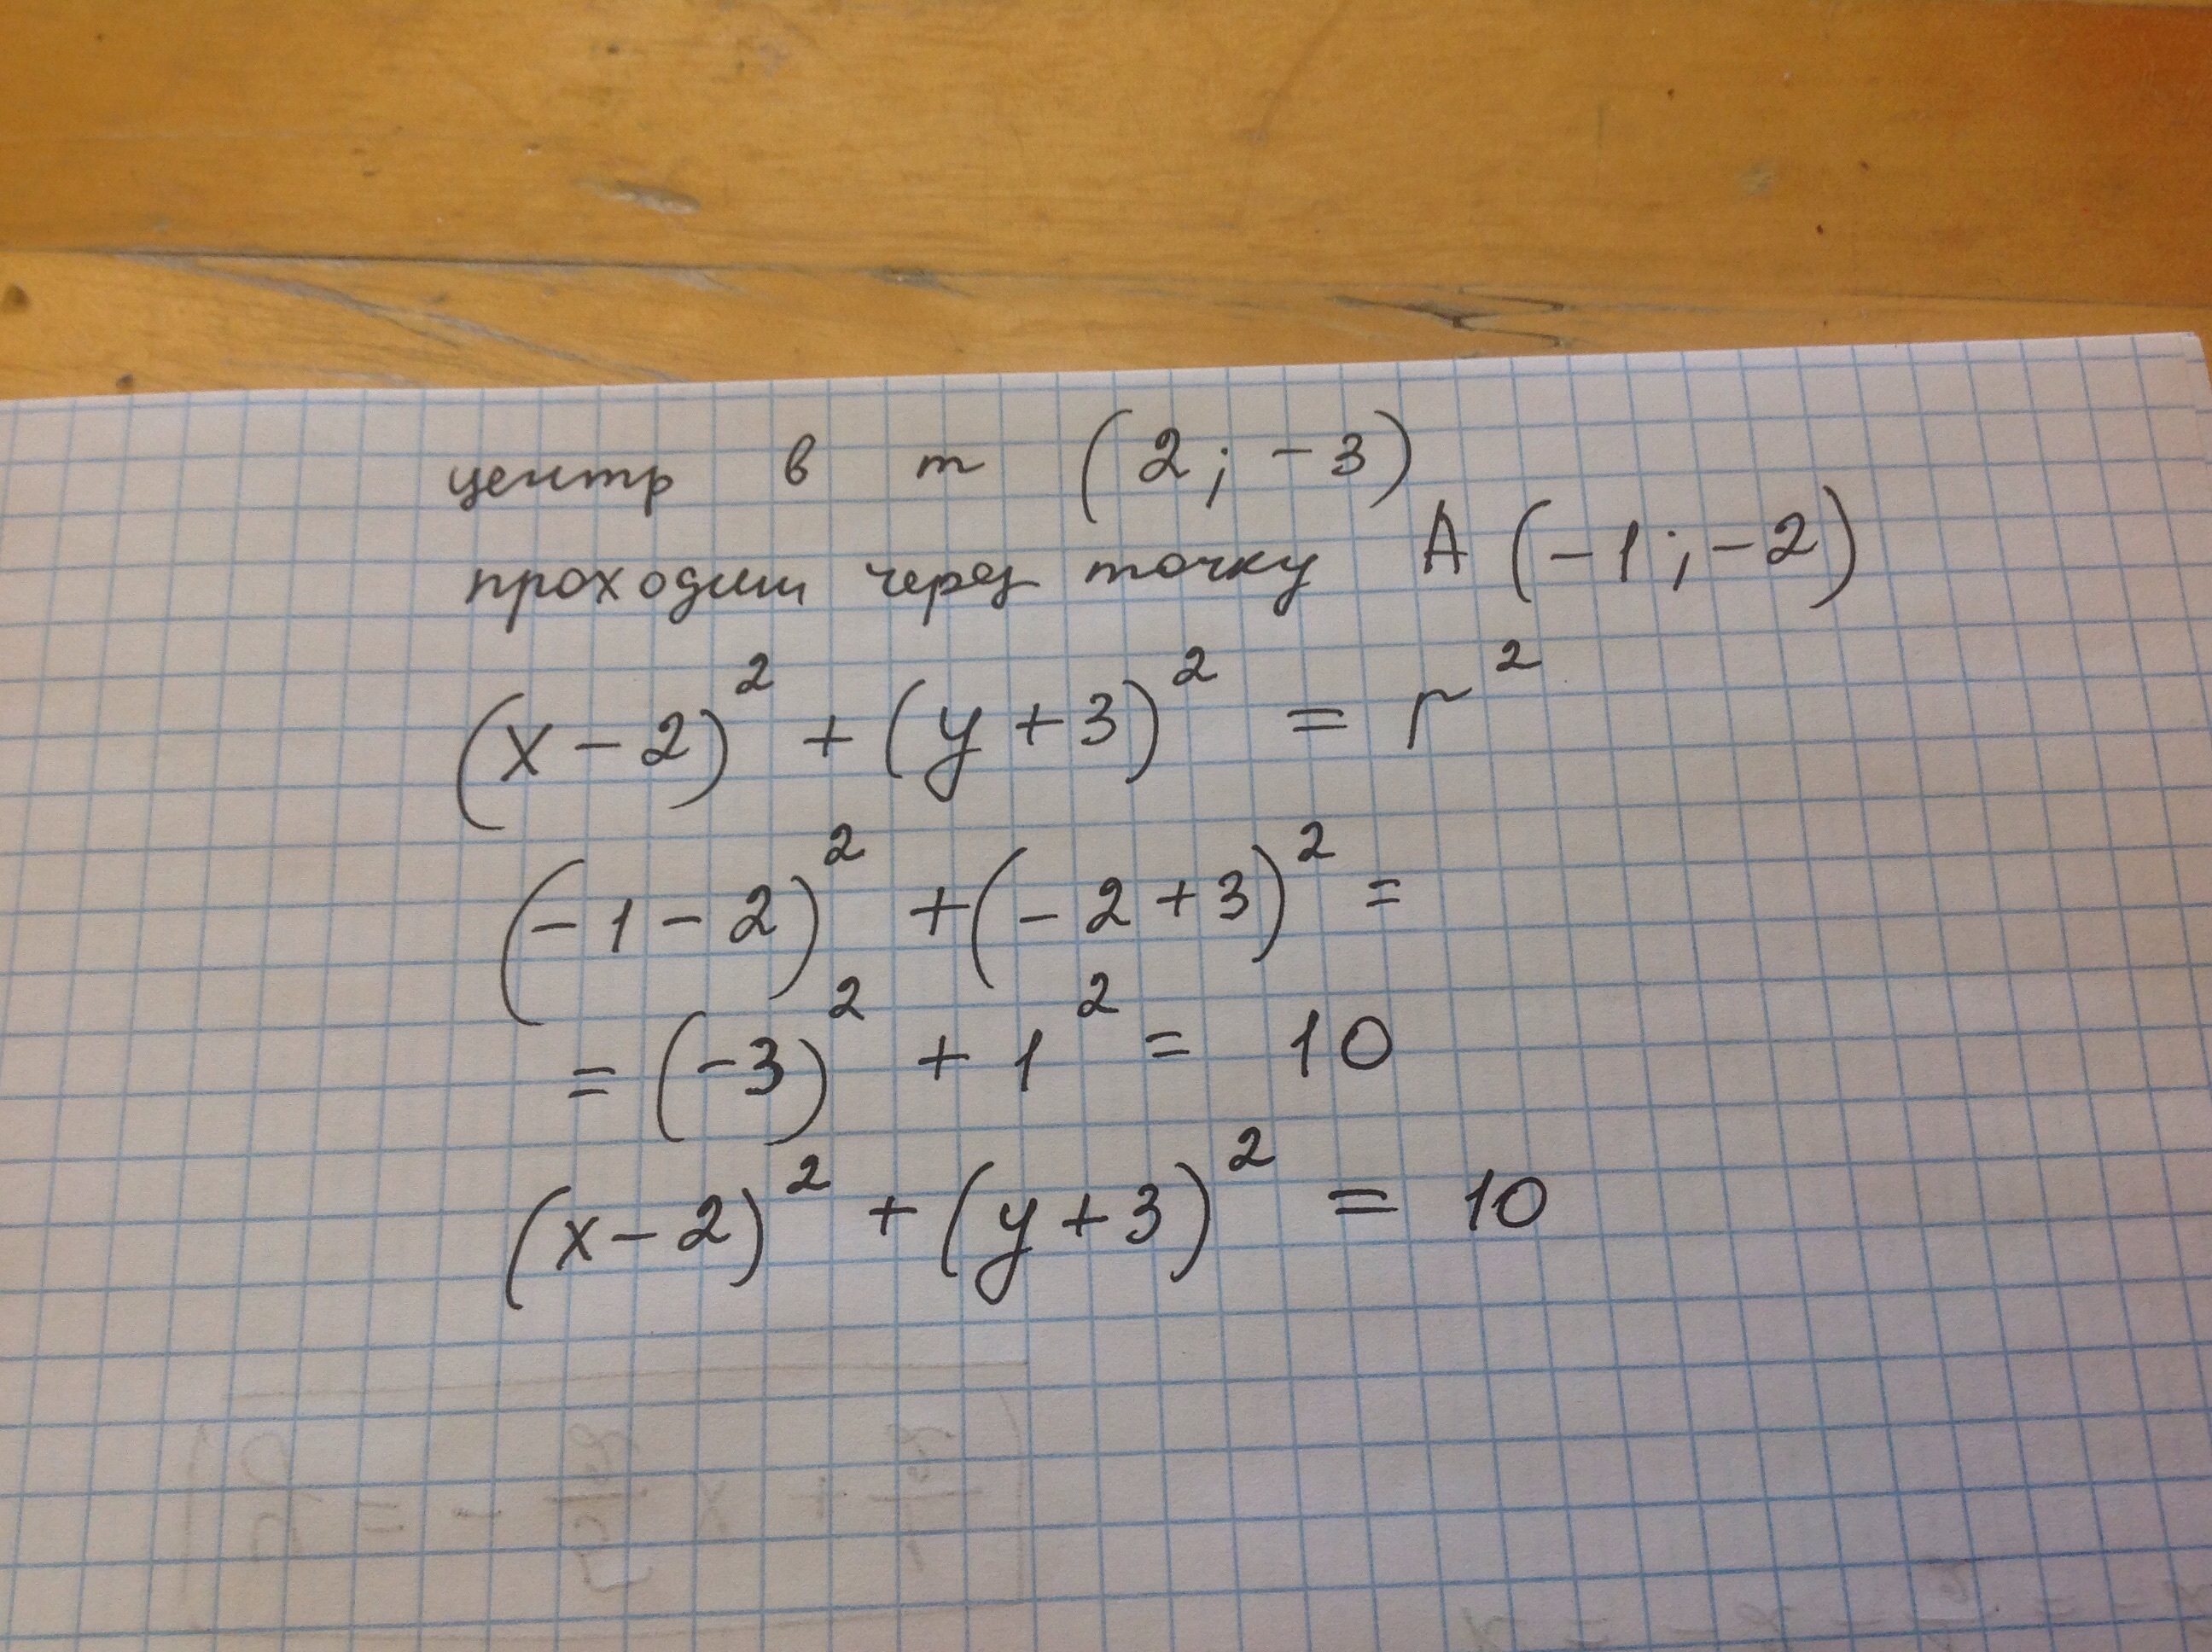 центр в т (2; -3)
проходит через точку А (-1; -2)
(x - 2)² + (y + 3)² = r²
(-1 - 2)² + (-2 + 3)² =
= (-3)² + 1² = 10
(x - 2)² + (y + 3)² = 10